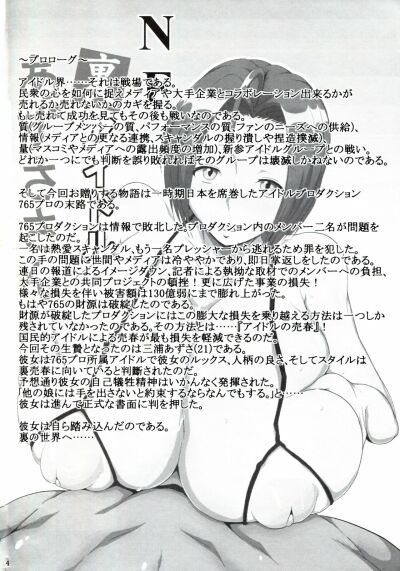 N
～プロローグ～
アイドル界……それは戦場である。
民衆の心を如何に捉えメディアや大手企業とコラボレーション出来るかが
売れるか売れないかのカギを握る。
もし売れて成功を見てもその後も戦いなのである。
質(グループメンバーの質、パフォーマンスの質、ファンのニーズへの供給)、
情報(メディアとの更なる連携、スキャンダルの握り潰しや捏造撲滅)、
量(マスコミやメディアへの露出頻度の増加)、新参アイドルグループとの戦い。
どれか一つにでも判断を誤り敗れればそのグループは壊滅しかねないのである。
そして今回お贈りする物語は一時期日本を席巻したアイドルプロダクション
765プロの末路である。
765プロダクションは情報で敗北した!プロダクション内のメンバー二名が問題を
起こしたのだ。
一名は熱愛スキャンダル、もう一名プレッシャーから逃れるため罪を犯した。
この手の問題に世間やメディアは冷ややかであり、即日掌返しをしたのである。
連日の報道によるイメージダウン、記者による執拗な取材でのメンバーへの負担、
大手企業との共同プロジェクトの頓挫!更に広げた事業の損失!
様々な損失を伴い被害額は130億弱にまで膨れ上がった。
もはや765の財源は破綻したのである。
財源が破綻したプロダクションにはこの膨大な損失を乗り越える方法は一つしか
残されていなかったのである。その方法とは……『アイドルの売春』!
国民的アイドルによる売春が最も損失を軽減できるのだ。
今回その生贄となったのは三浦あずさ(21)である。
彼女は765プロ所属アイドルで彼女のルックス、人柄の良さ、そしてスタイルは
裏売春に向いていると判断されたのだ。
予想通り彼女の自己犠牲精神はいかんなく発揮された。
「他の娘には手を出さないと約束するならなんでもする。」と……
彼女は進んで正式な書面に判を押した。
彼女は自ら踏み込んだのである。
裏の世界へ……
4